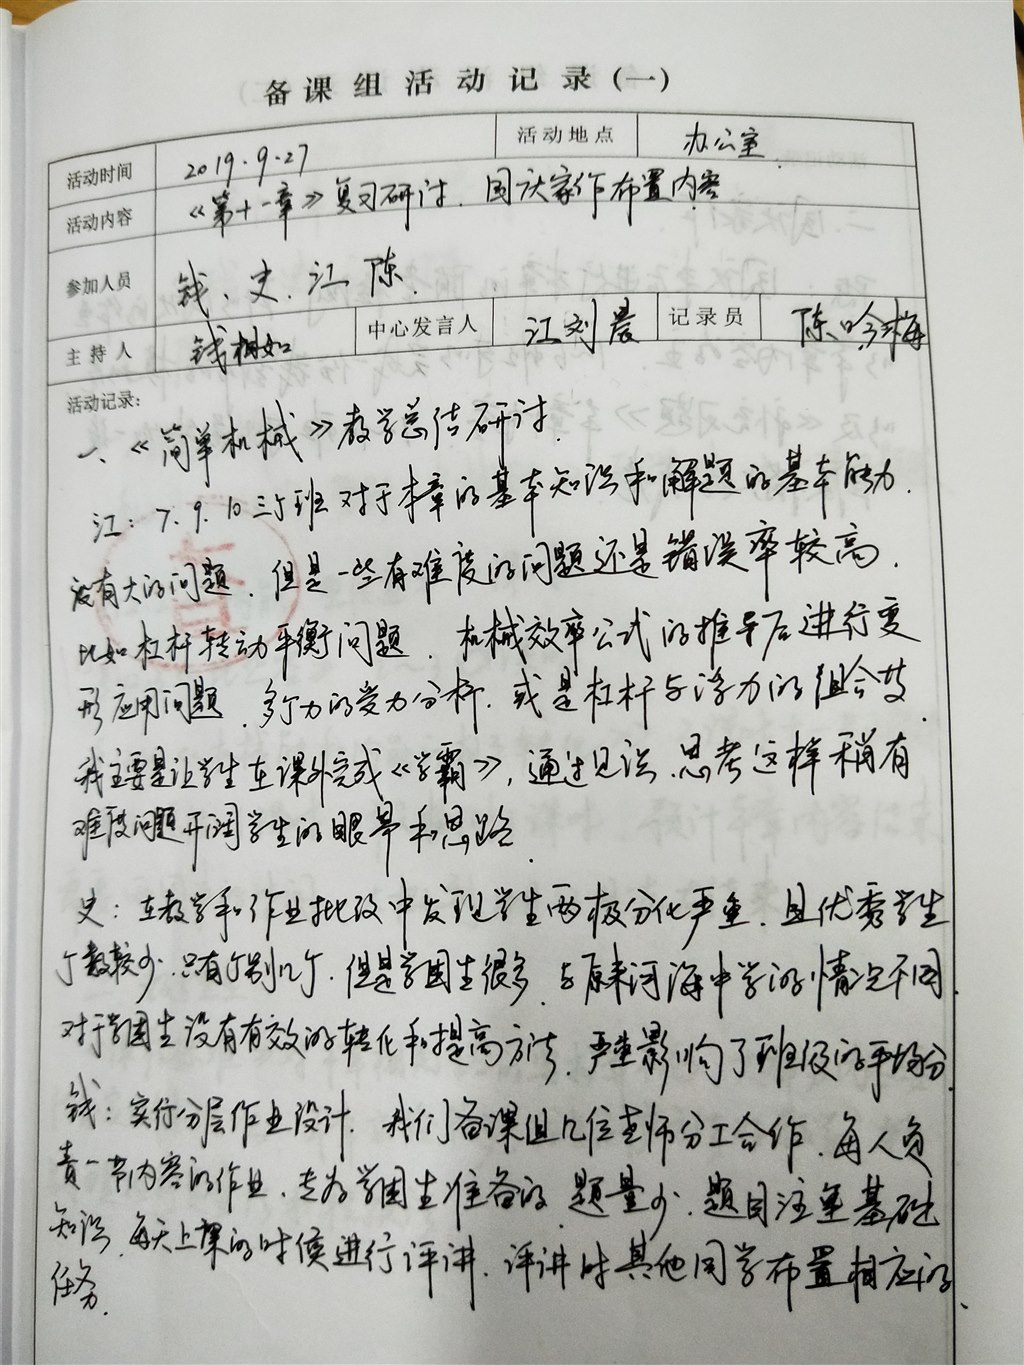 备课组活动记录(一)
活动时间 2019.9.27 活动地点 办公室
活动内容 《第十一章》复习研讨、国庆家作布置内容
参加人员 钱、史、江、陈
主持人 钱相如 中心发言人 江刘晨 记录员 陈吟梅
活动记录:
一、《简单机械》教学总结研讨.
江: 7.9.10三个班对于本章的基本知识和解题的基本能力.
没有大的问题. 但是一些有难度的问题还是错误率较高.
比如杠杆转动平衡问题、机械效率公式的推导后进行变
形应用问题、多个力的受力分析.或是杠杆与浮力的组合等.
我主要是让学生在课外完成《学霸》,通过见识、思考这样稍有
难度问题开阔学生的眼界和思路.
史: 在教学和作业批改中发现学生两极分化严重、且优秀学生
个数较少.只有个别几个.但是学困生很多、与原来河海中学的情况不同.
对于学困生没有有效的转化和提高方法,严重影响了班级的平均分.
钱: 实行分层作业设计. 我们备课组几位老师分工合作、每人负
责一节内容的作业、专为学困生准备的、题量少、题目注重基础
知识、每天上课的时候进行评讲、评讲时其他同学布置相应的
任务.